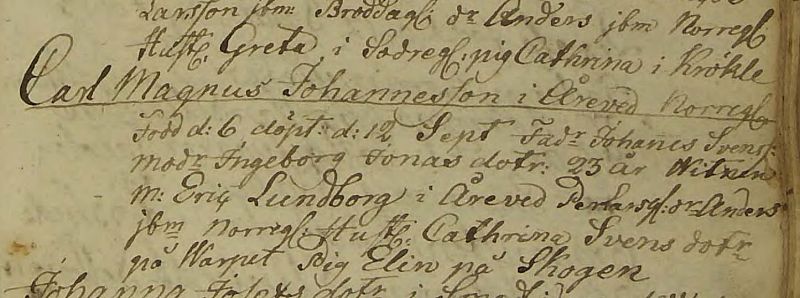 Larsson jbm: Broddag: dr Anders jbm Norregl
Hust: Greta i Sodregl: pig Cathrina i Krökle
Carl Magnus Johannesson i Åreved Norregl
Född d: 6 döpt: d: 12 Sept Fadr Johanes Svens:
modr Ingeborg Jonas dotr: 23 år Witnen
m: Eriç Lundborg i Åreved dr Anders
jbm Norregl: Hust: Cathrina Svens dotr
på Warpet Pig Elin på Skogen
Johanna dotr i